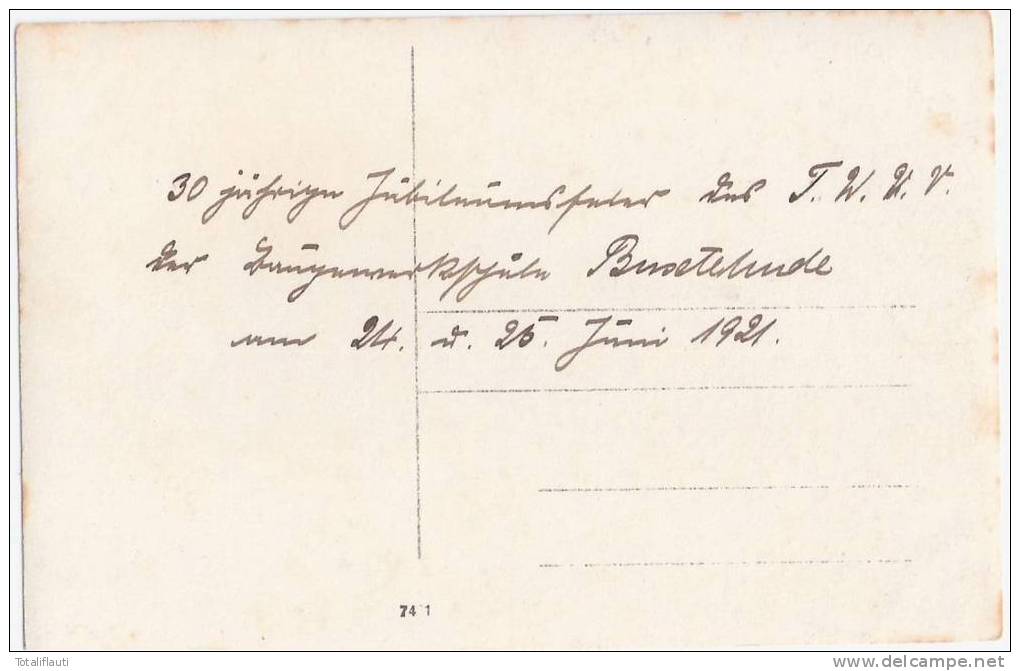 30 jährige Jubiläumsfeier des T. W. K. V.
der Baugewerkschule Buxtehude
am 24. u. 25. Juni 1921.
74 1
Totaliflauti
www.delcampe.net